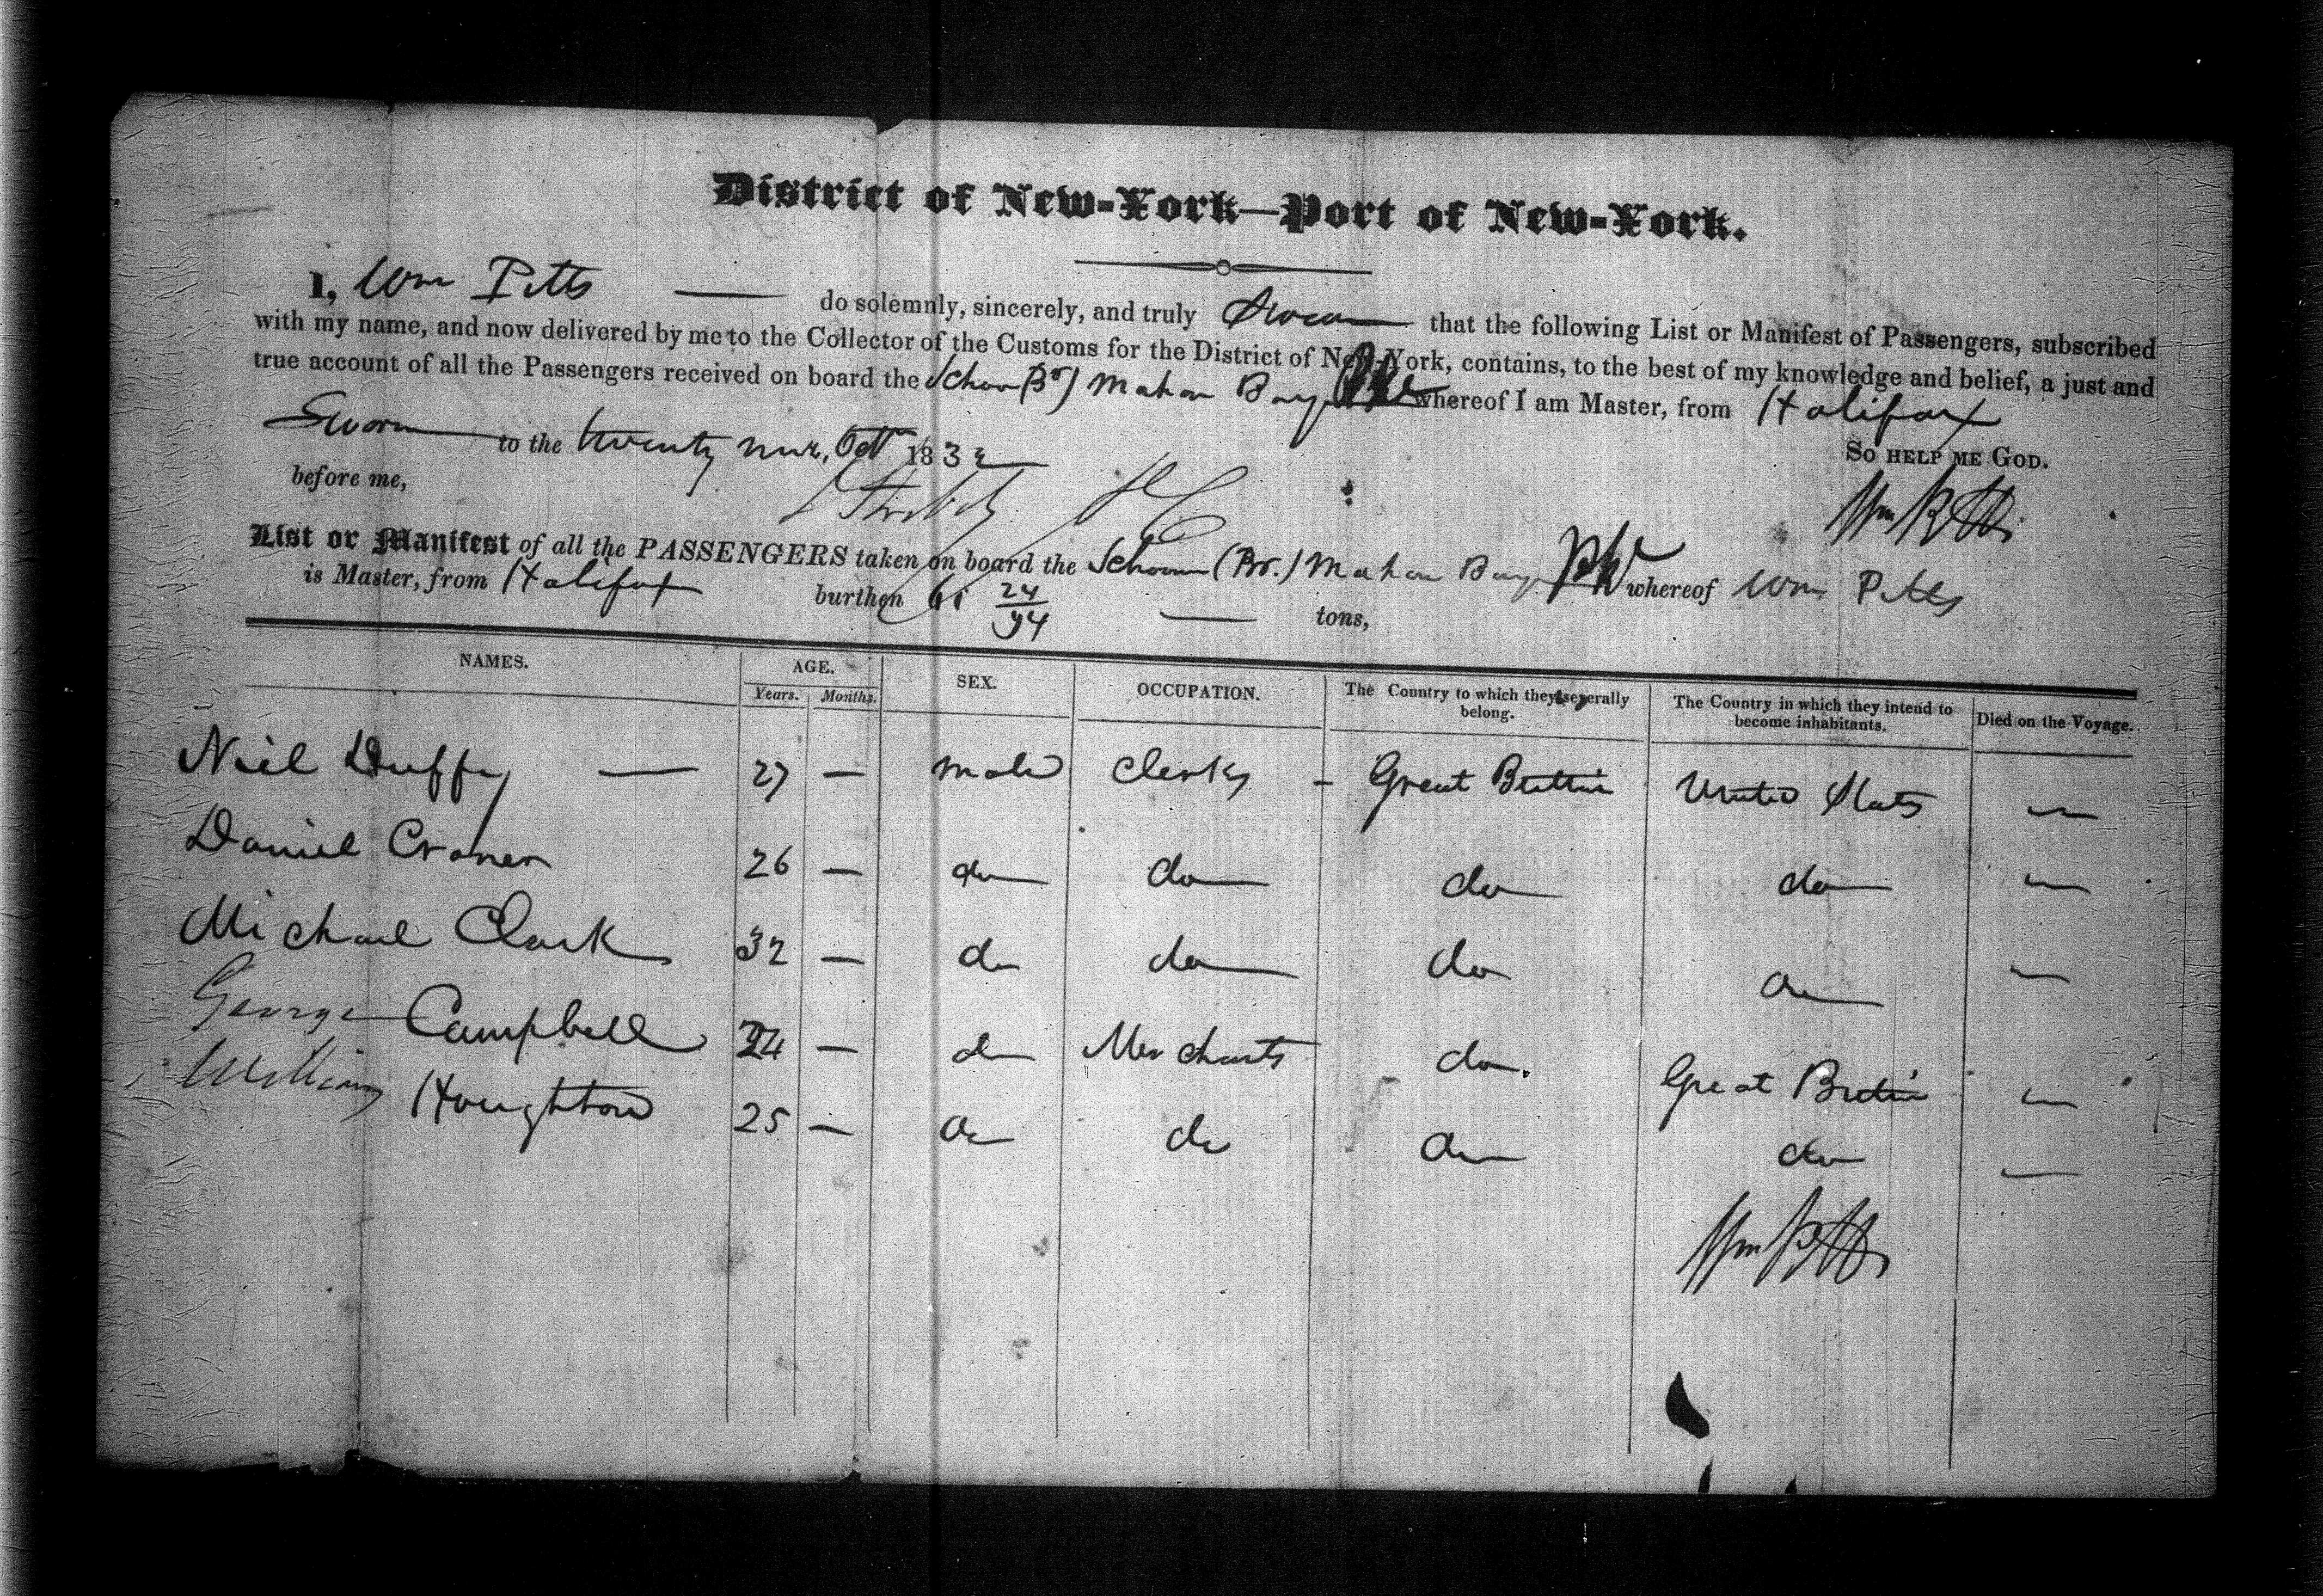 District of New-York—Port of New-York.
I, Wm Pitts — do solemnly, sincerely, and truly Swear that the following List or Manifest of Passengers, subscribed
with my name, and now delivered by me to the Collector of the Customs for the District of New-York, contains, to the best of my knowledge and belief, a just and
true account of all the Passengers received on board the Schon (Br) Mahon Bay whereof I am Master, from Halifax
Sworn to the twenty nine, Oct 1832
So HELP ME GOD.
before me,
Wm Pitts
List or Manifest of all the PASSENGERS taken on board the Schooner (Br.) Mahon Bay whereof Wm Pitts
is Master, from Halifax burthen 61 24/94 — tons,
NAMES. AGE. SEX. OCCUPATION. The Country to which they severally belong. The Country in which they intend to become inhabitants. Died on the Voyage.
Years. Months.
Niel Duffy — 27 — male Clerks - Great Brittin United States —
Daniel Cronen 26 — do do do do —
Michael Clark 32 — do do do do —
George Campbell 24 — do Merchants do. Great Britin —
William Houghton 25 — do do do do —
Wm Pitts